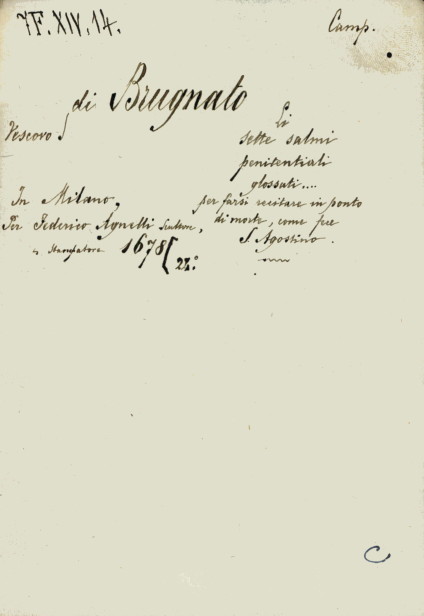 7F.XIV.14.
Camp.
di Brugnato
Vescovo
Li
sette salmi
penitentiali
glossati....
per farsi recitare in ponto
di morte, come fece
S. Agostino.
In Milano,
Per Federico Agnelli Scultore,
e Stampatore 1678
22.°
C